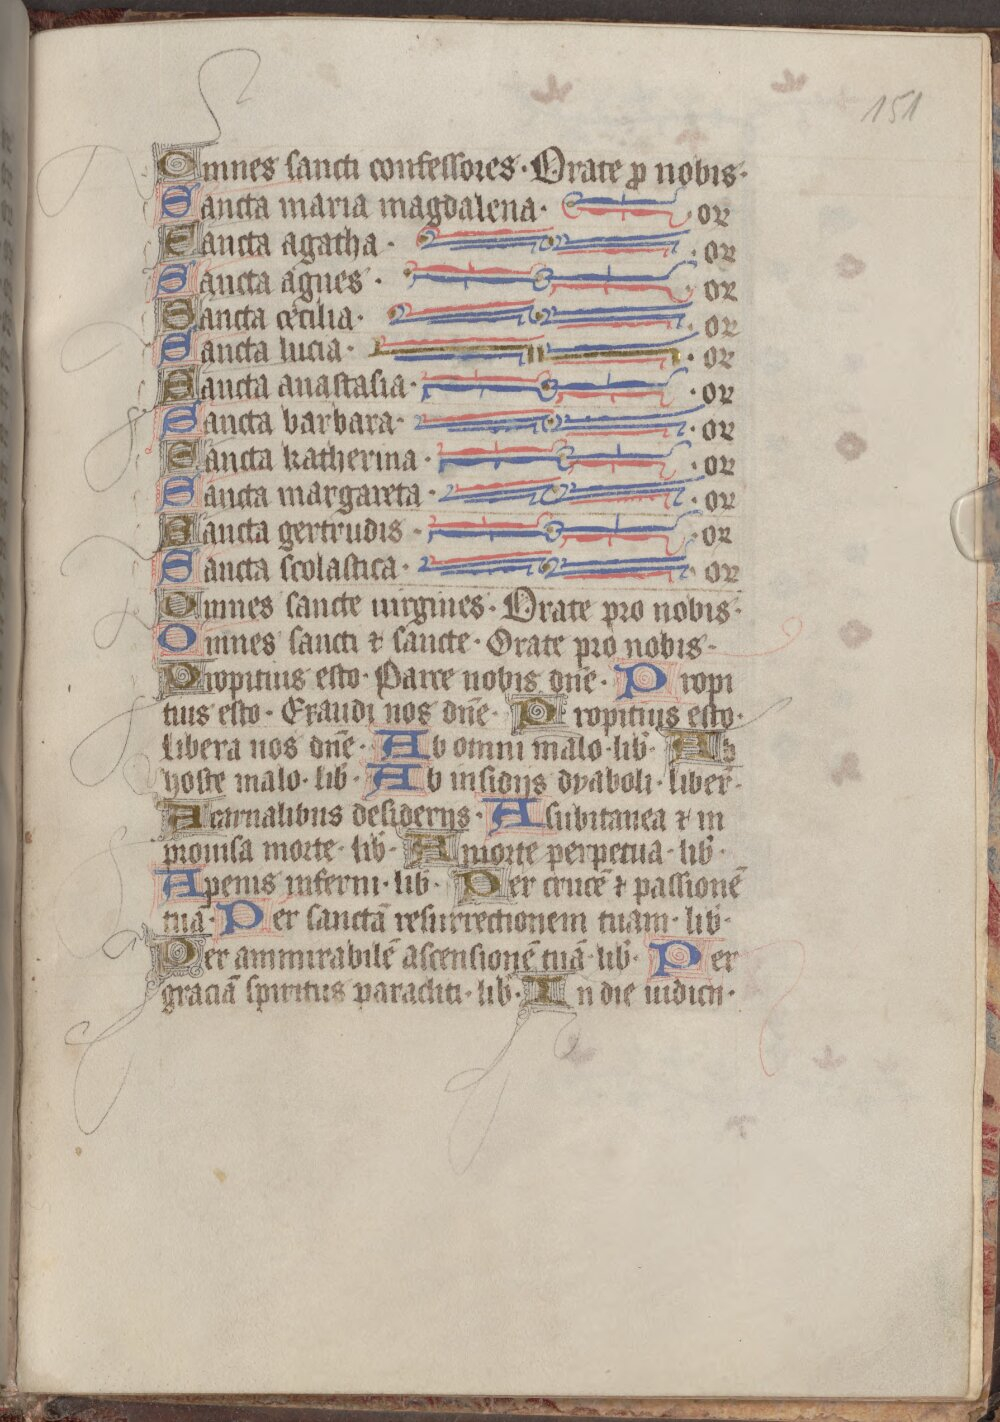 151
Omnes sancti confessores · Orate ꝓ nobis ·
Sancta maria magdalena · or
Sancta agatha · or
Sancta agnes · or
Sancta cecilia · or
Sancta lucia · or
Sancta anastasia · or
Sancta barbara · or
Sancta katherina · or
Sancta margareta · or
Sancta gertrudis · or
Sancta scolastica · or
Omnes sancte uirgines · Orate pro nobis ·
Omnes sancti ⁊ sancte · Orate pro nobis ·
Propitius esto · Parce nobis dn̄e · Propi
tius esto · Exaudi nos dn̄e · Propitius esto ·
Libera nos dn̄e · Ab omni malo · lib̄ · Ab
hoste malo · lib̄ · Ab insidijs dyaboli · liber ·
A carnalibus desiderijs · A subitanea ⁊ in
prouisa morte · lib̄ · A morte perpetua · lib̄ ·
A penis inferni · lib̄ · Per crucē ⁊ passionē
tuā · Per sanctā resurrectionem tuam · lib̄ ·
Per ammirabilē ascensionē tuā · lib̄ · Per
graciā spiritus paracliti · lib̄ · In die iudicii ·